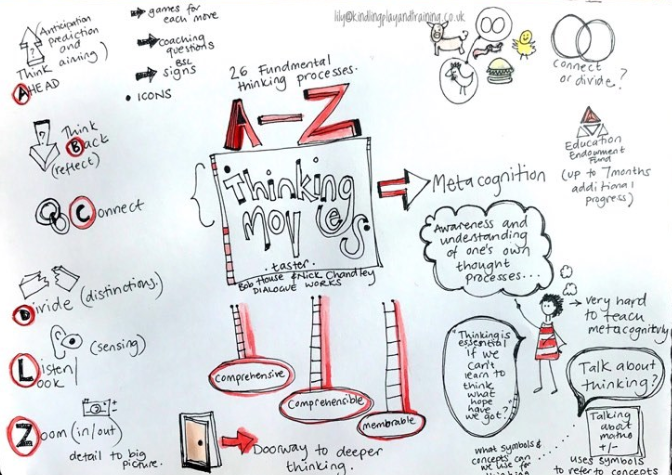 Anticipation
prediction
and
aiming)
?
Think
AHEAD
games for
each move
coaching
questions
BSL
signs
• ICONS
lily@kindlingplayandtraining.co.uk
connect
or divide?
26 Fundmental
thinking processes.
A-Z
Thinking
Moves.
. taster.
Bob House & Nick Chandley
DIALOGUE WORKS
?
Think
Back
(reflect)
Connect
Divide (distinctions.)
(sensing)
Listen/
Look
Zoom (in/out)
+
-
detail to big
picture.
Metacognition
Education
Endowment
Fund
(up to 7 months
additional
progress)
Awareness and
understanding
of one's own
thought
processes...
very hard
to teach
metacognitively
comprehensive
comprehensible
memorable
Doorway to deeper
thinking.
"Thinking is
essential
if we
can't
learn to
think
what
hope
have
we got?"
Talk about
thinking?
Talking
about
maths
+/-
what symbols &
concepts can
we use for
uses symbols
to refer to concepts